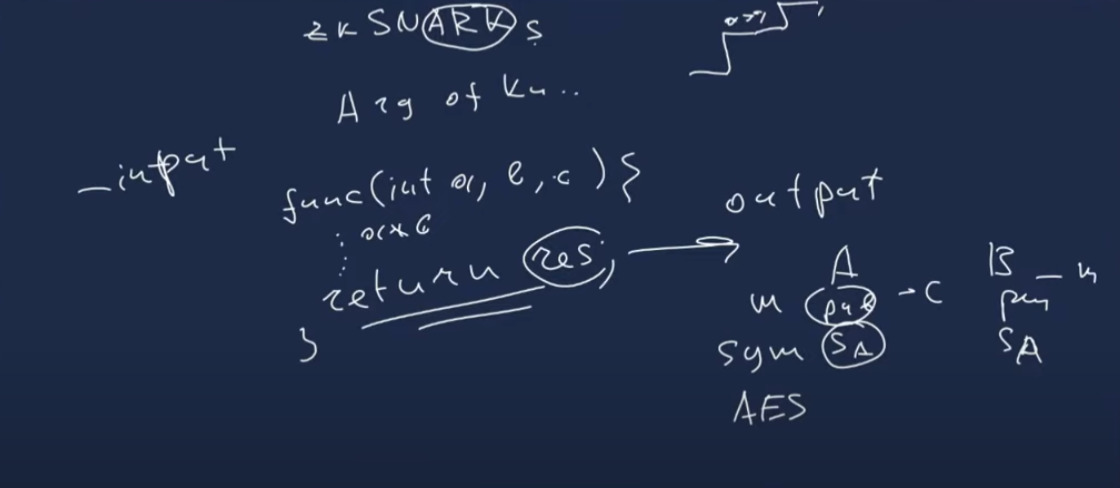 zk SNARKs
Arg of Kn..
input
func(int a, b, c) {
a * b
return res;
}
output
A
B
m
pub
C
m
sym
SA
SA
AES